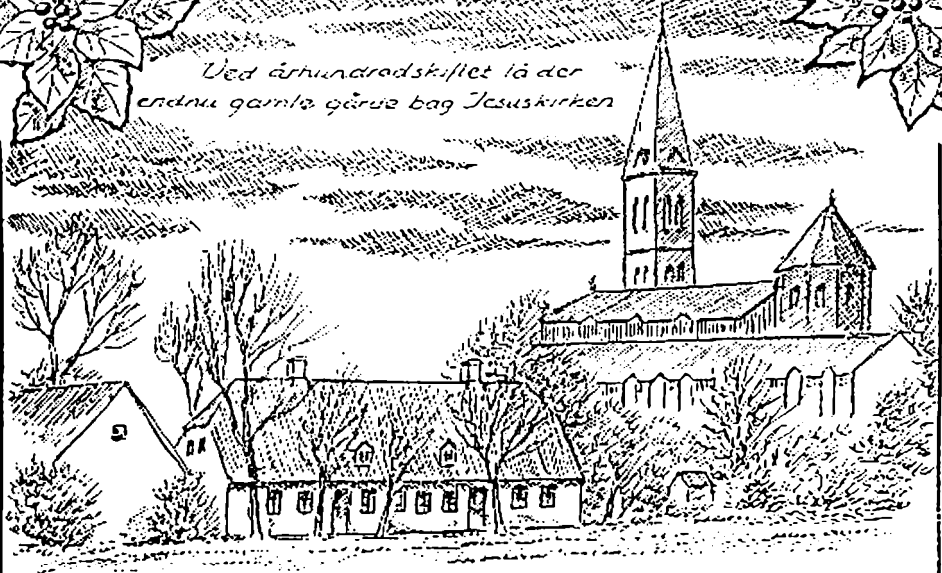 Ved århundredskiftet lå der
endnu gamle gårde bag Jesuskirken